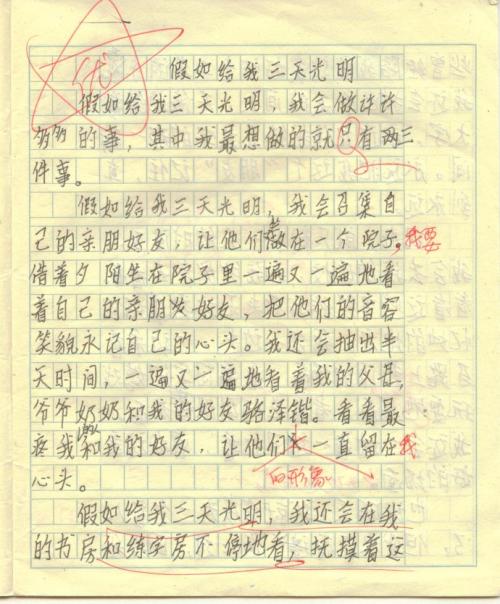 优
假如给我三天光明
假如给我三天光明，我会做许许
多多的事，其中我最想做的就只有两三
件事。
假如给我三天光明，我会召集自
己的亲朋好友，让他们做在一个院子。我要
借着夕阳坐在院子里一遍又一遍地看
着自己的亲朋友好友，把他们的音容
笑貌永记自己的心头。我还会抽出半
天时间，一遍又一遍地看着我的父母，
爷爷奶奶和我的好友骆泽锴。看看最
疼我和我的好友，让他们一直留在我
的形象
心头。
假如给我三天光明，我还会在我
的书房和练字房不停地看，抚摸着这